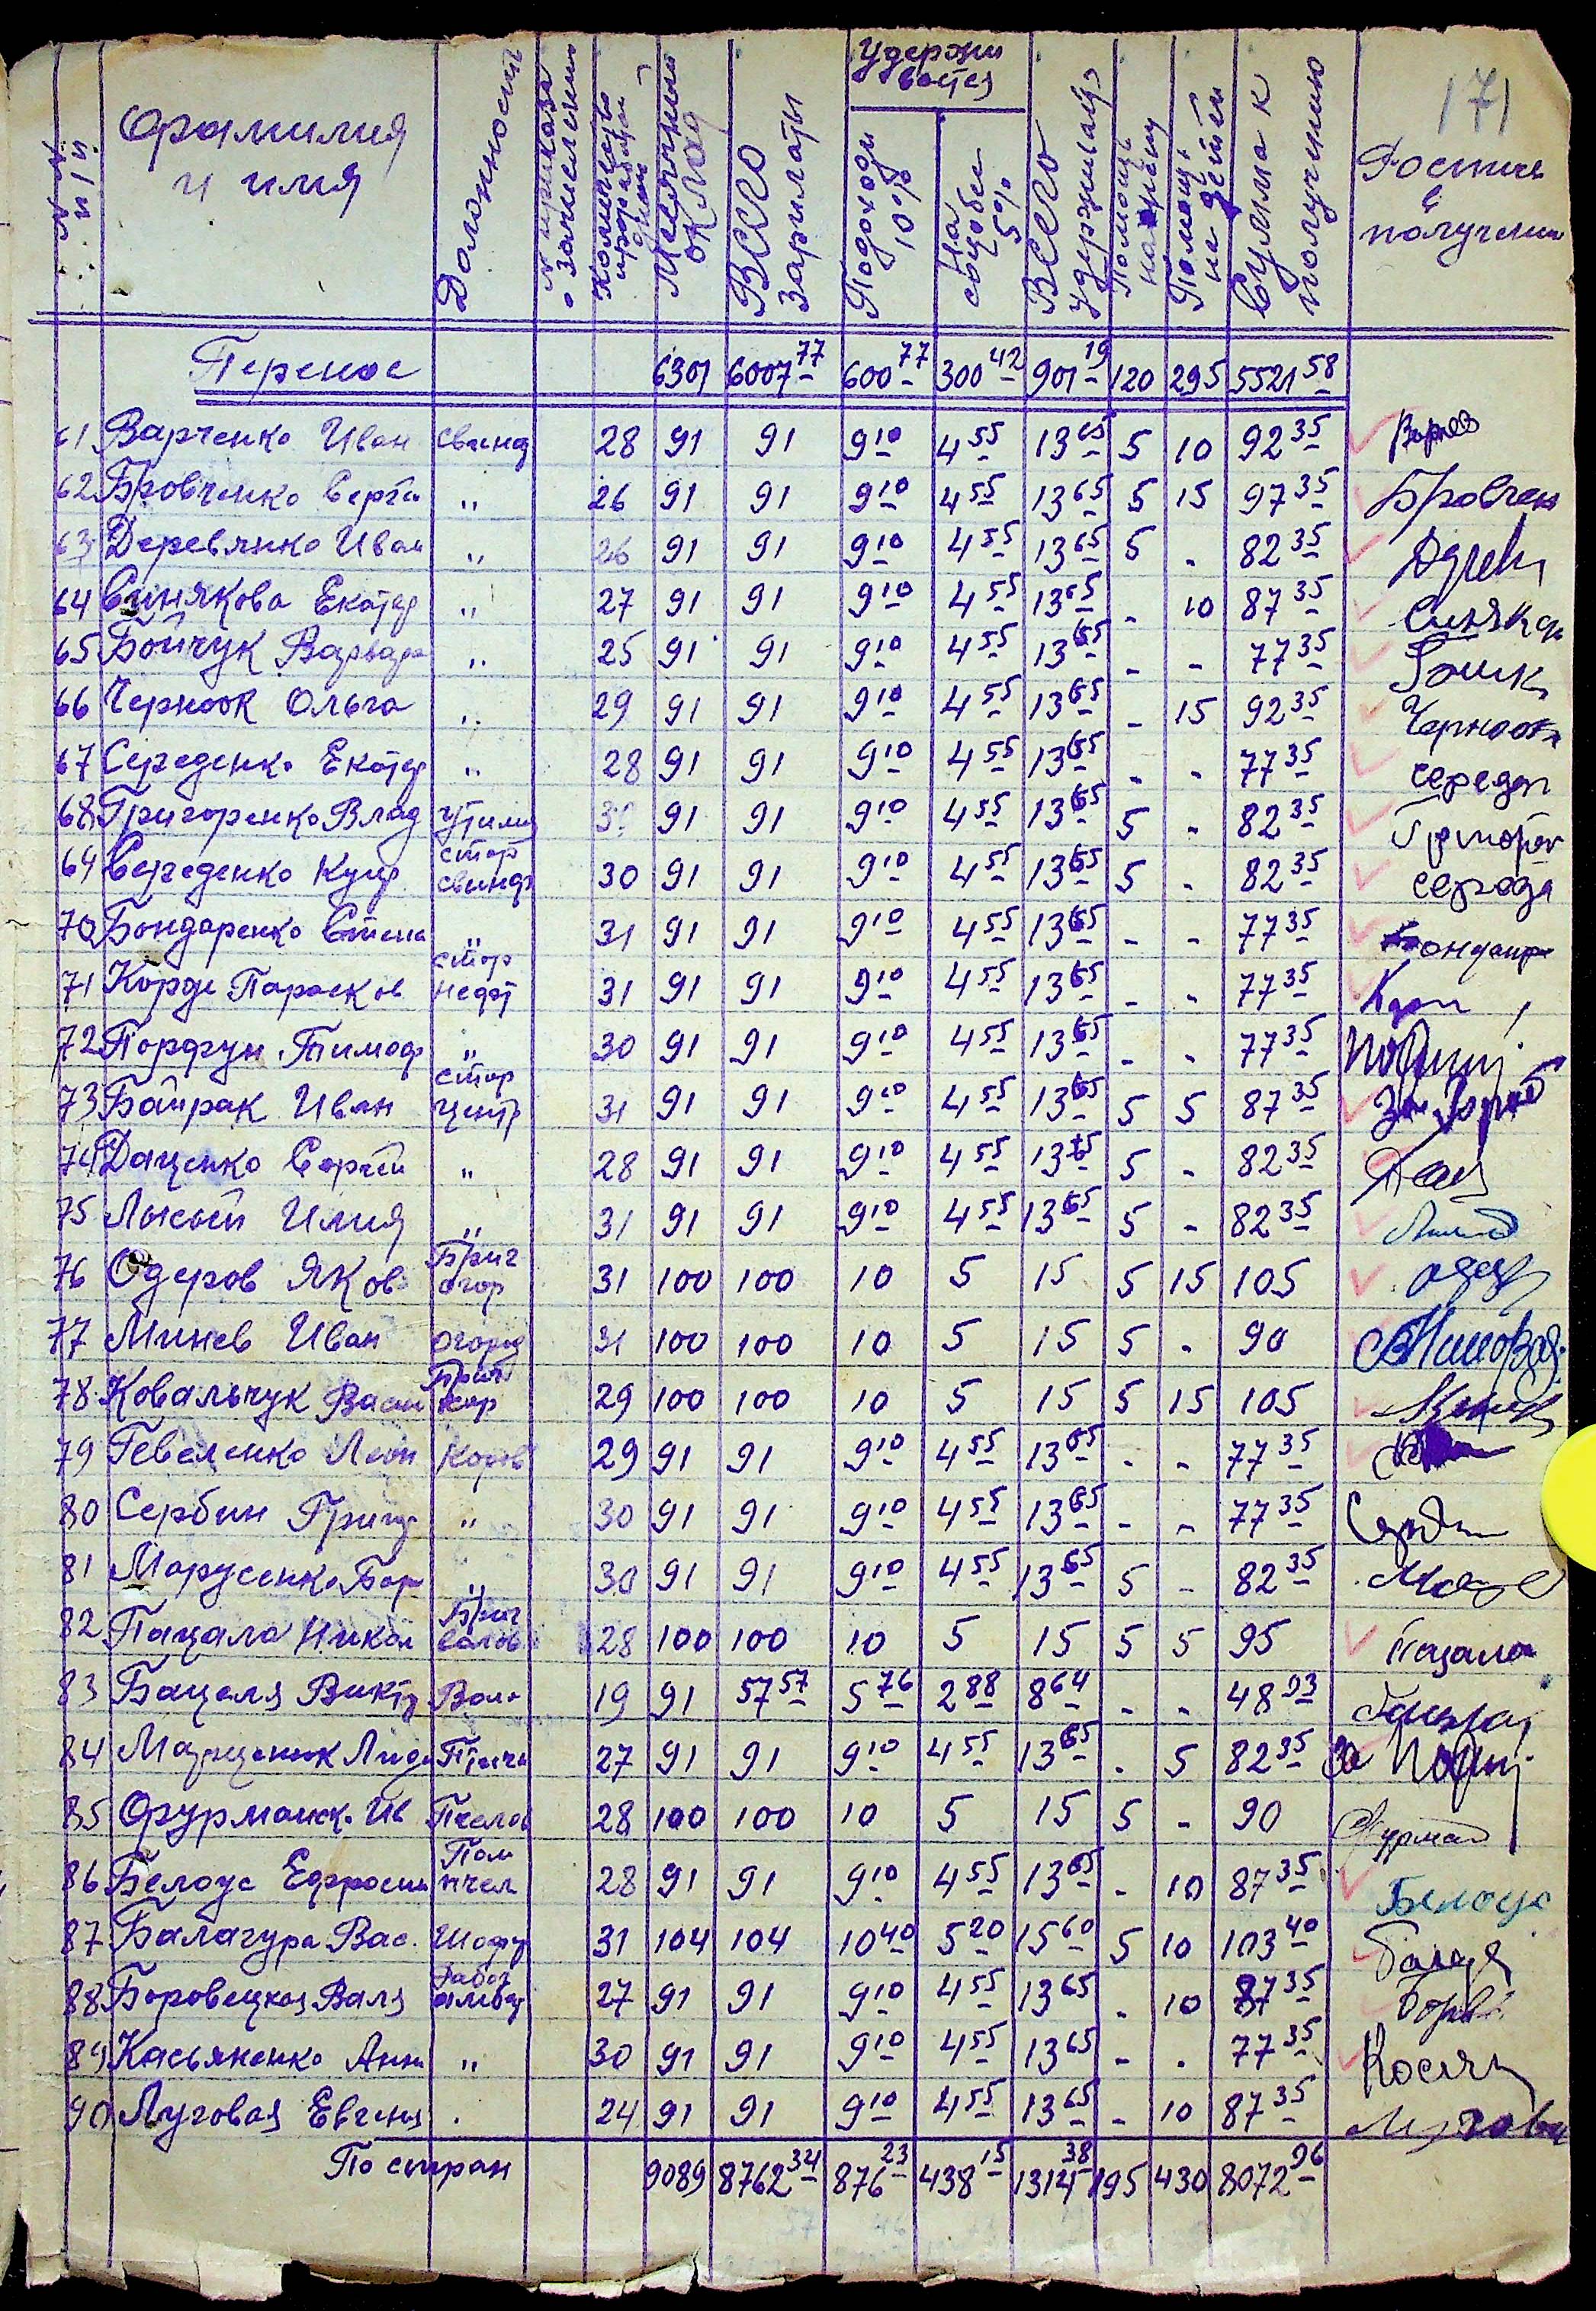 171
№№ п/п Фамилия и имя Должность № приказа о зачислении Количество прорабочан дней Месячный оклад Всего зарплаты Удерживается Подоходн 10% На соцобес 5% Всего удержания Помощь на жену Помощь на детей Сумма к получению Роспись в получении
Перенос 6301 6007 77 600 77 300 42 901 19 120 295 5521 58
61 Варченко Иван свинар 28 91 91 9 10 4 55 13 65 5 10 92 35
62 Бровченко Сергей " 26 91 91 9 10 4 55 13 65 5 15 97 35 Бровчен
63 Деревянко Иван " 26 91 91 9 10 4 55 13 65 5 - 82 35
64 Синякова Екатер " 27 91 91 9 10 4 55 13 65 - 10 87 35 Синяков
65 Бойчук Варвара " 25 91 91 9 10 4 55 13 65 - - 77 35
66 Черноок Ольга " 29 91 91 9 10 4 55 13 65 - 15 92 35 Черноок
67 Середенко Екатер " 28 91 91 9 10 4 55 13 65 - - 77 35 Середен
68 Григоренко Влад 91 91 9 10 4 55 13 65 5 - 82 35
69 Середенко Куп стор свинар 30 91 91 9 10 4 55 13 65 5 - 82 35 Середа
70 Бондаренко Степа " 31 91 91 9 10 4 55 13 65 - - 77 35 Бондар
71 Корде Парасков стор нефт 31 91 91 9 10 4 55 13 65 - - 77 35
72 Порфун Тимоф " 30 91 91 9 10 4 55 13 65 - - 77 35
73 Байрак Иван стор центр 31 91 91 9 10 4 55 13 65 5 5 87 35
74 Даценко Сергей " 28 91 91 9 10 4 55 13 65 5 - 82 35 Дац
75 Лысый Илия " 31 91 91 9 10 4 55 13 65 5 - 82 35
76 Одеров Яков Бриг огор 31 100 100 10 5 15 5 15 105
77 Минев Иван огород 31 100 100 10 5 15 5 - 90
78 Ковальчук Васил Бриг 29 100 100 10 5 15 5 15 105
79 Гевеленко Леон 29 91 91 9 10 4 55 13 65 - - 77 35
80 Сербин Григор " 30 91 91 9 10 4 55 13 65 - - 77 35
81 Марусенко Бор " 30 91 91 9 10 4 55 13 65 5 - 82 35
82 Пацала Никол Бриг садов 28 100 100 10 5 15 5 5 95 Пацала
83 Бацеля Виктор 19 91 57 57 5 76 2 88 8 64 - - 48 93
84 Марценюк Лида 27 91 91 9 10 4 55 13 65 - 5 82 35 За
85 Фурманск. Ив Пчелов 28 100 100 10 5 15 5 - 90 Фурман
86 Белоус Ефросин Пом пчел 28 91 91 9 10 4 55 13 65 - 10 87 35 Белоус
87 Балагура Вас. Шофер 31 104 104 10 40 5 20 15 60 5 10 103 40
88 Боровецкая Валя Работ амбар 27 91 91 9 10 4 55 13 65 - 10 87 35
89 Касьяненко Анна " 30 91 91 9 10 4 55 13 65 - - 77 35 Касян
90 Луговая Евгения . 24 91 91 9 10 4 55 13 65 - 10 87 35 Лугова
По стран 9089 8762 34 876 23 438 15 1314 38 195 430 8072 96